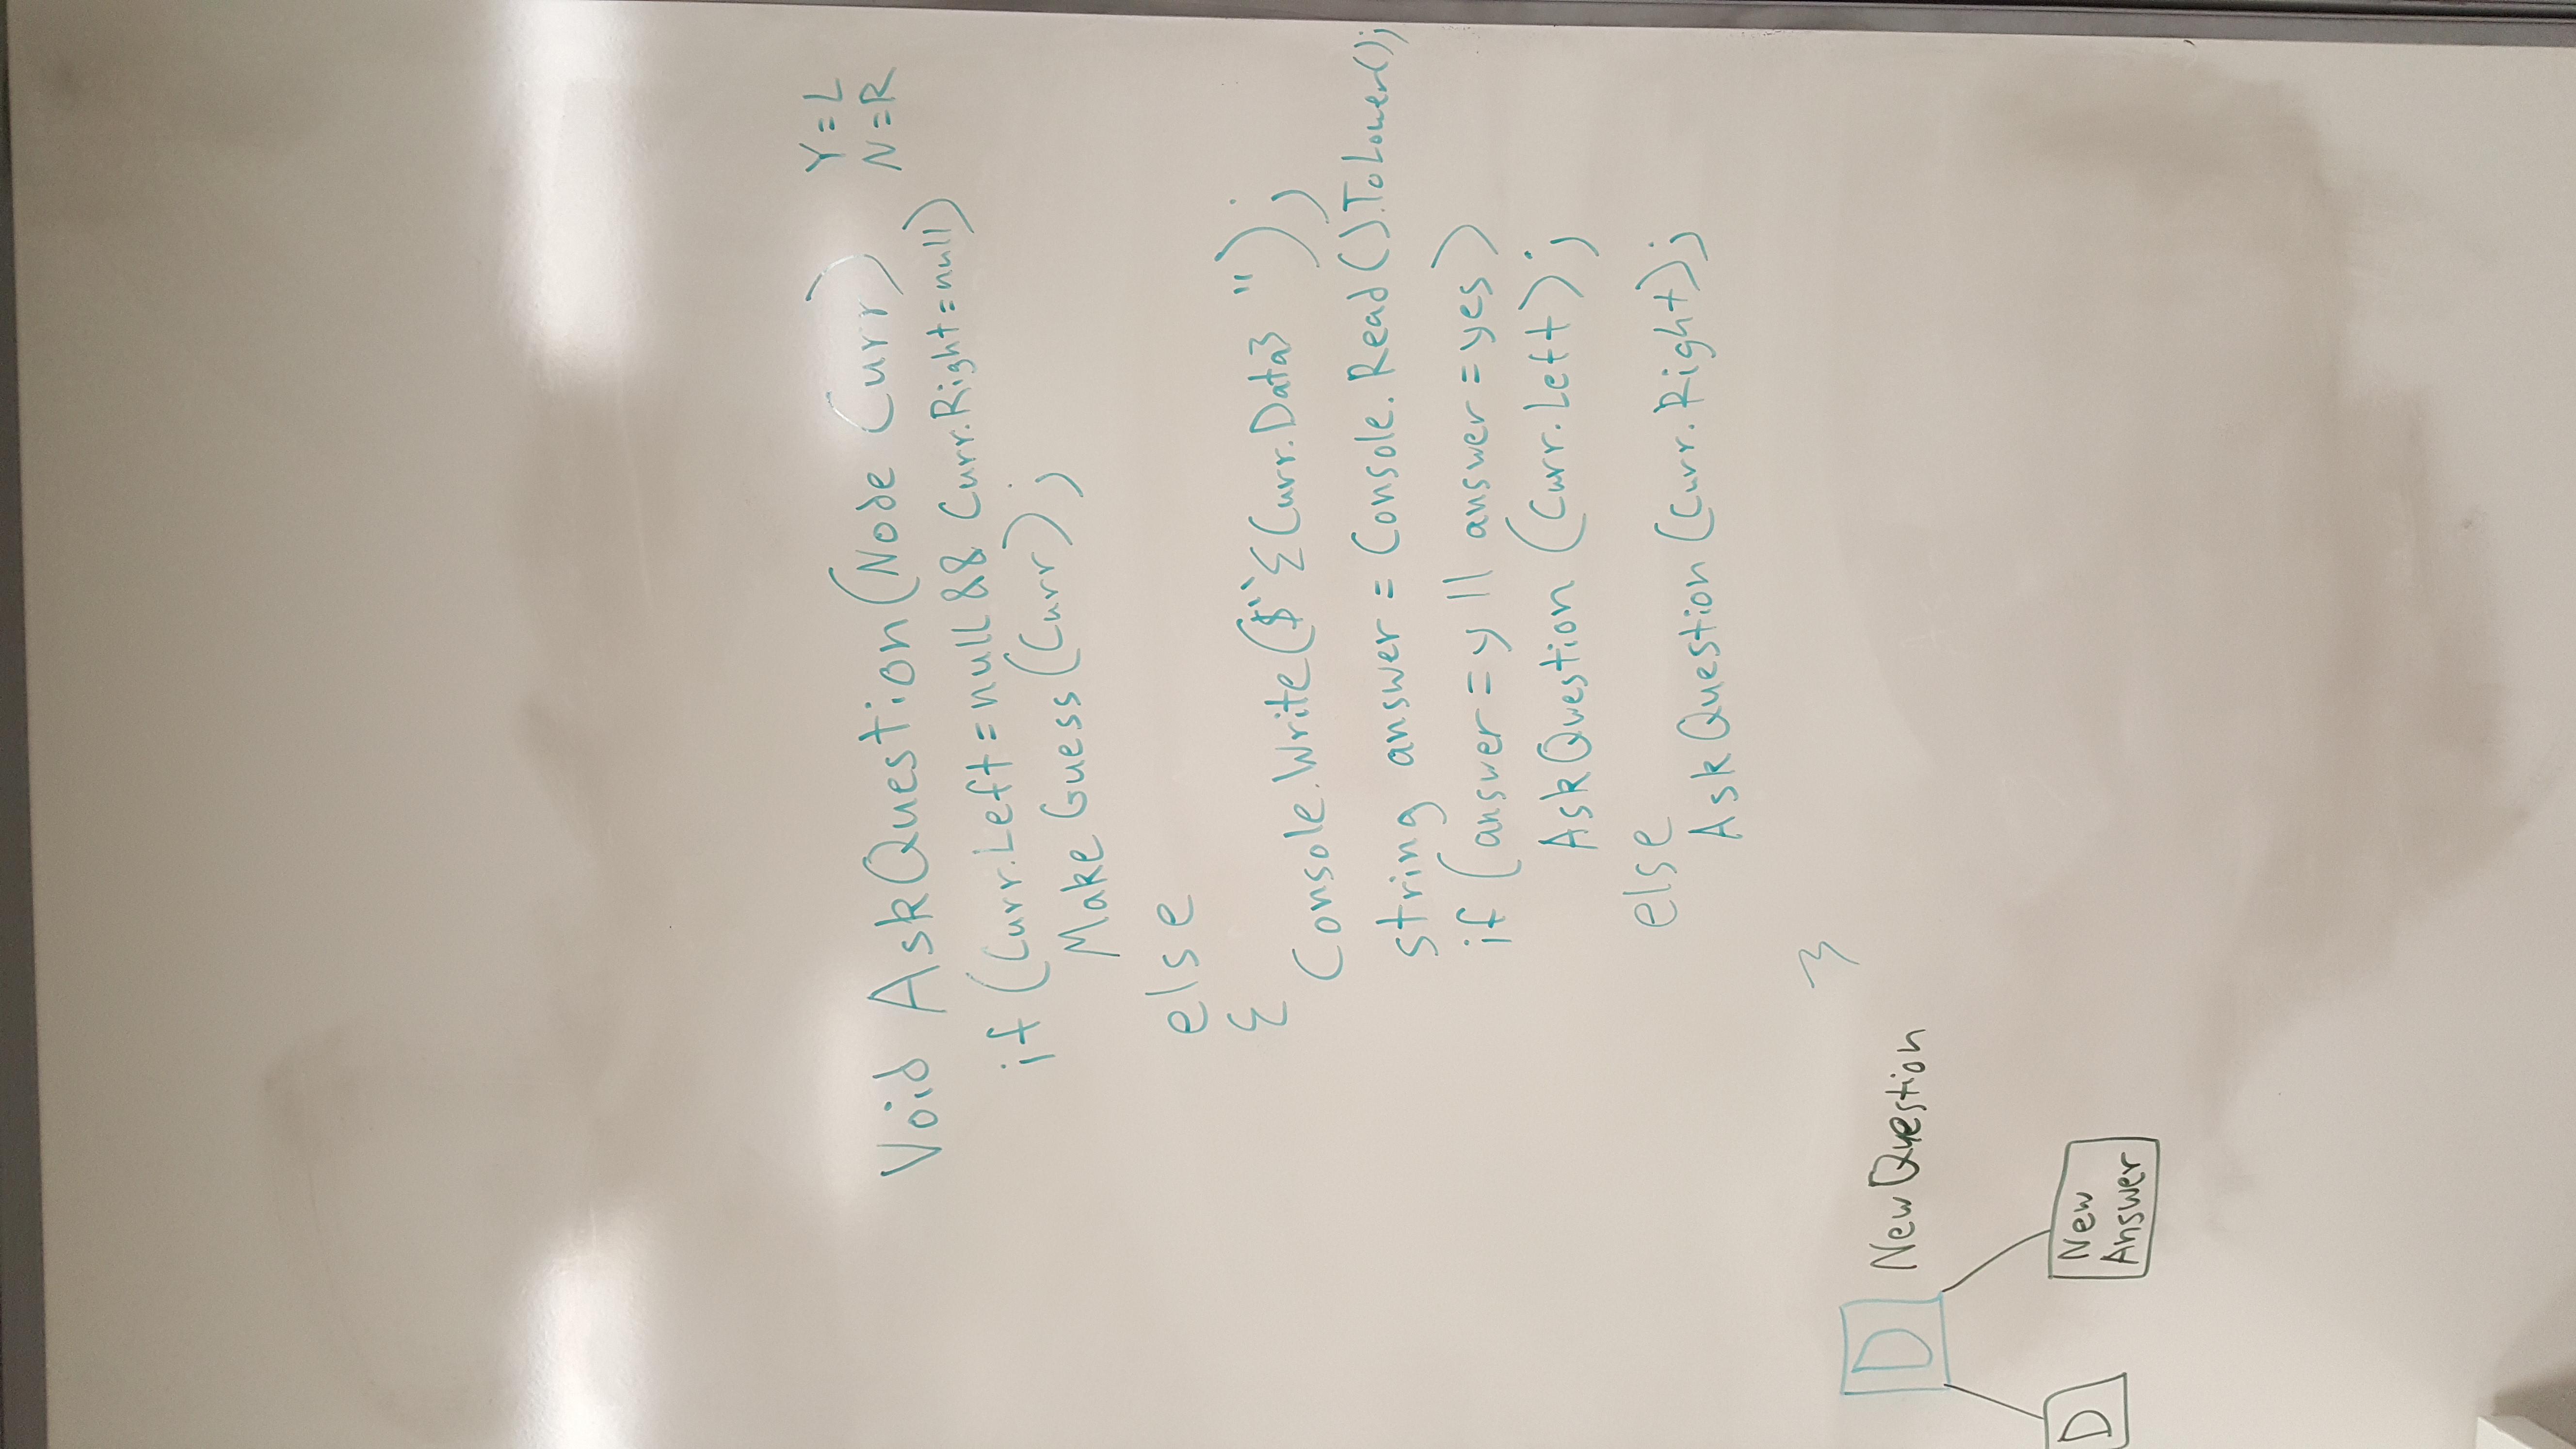 Void AskQuestion(Node Curr)
Y=L
N=R
if (Curr.Left=null && Curr.Right=null)
Make Guess(Curr);
else
{
Console.Write($"{Curr.Data} ");
string answer = Console.Read().ToLower();
if (answer=y || answer=yes)
AskQuestion (Curr.Left);
else
AskQuestion (Curr.Right);
}
D
New Question
D
New
Answer